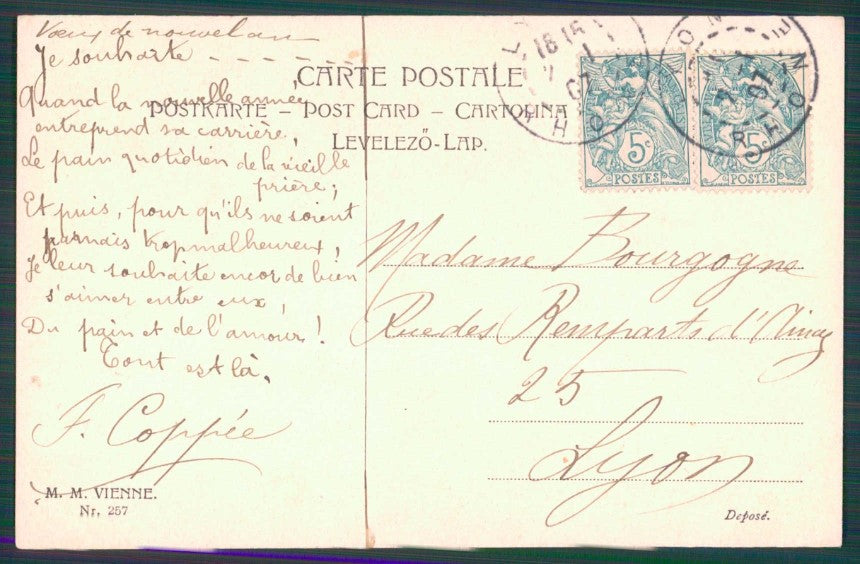 Vœux de nouvel an
Je souhaite - - - - - -
Quand la nouvelle année
entreprend sa carrière,
Le pain quotidien de la vieille
prière;
Et puis, pour qu'ils ne soient
jamais trop malheureux,
Je leur souhaite encor de bien
s'aimer entre eux,
Du pain et de l'amour!
Tout est là.
F. Coppée
M. M. VIENNE.
Nr. 257
CARTE POSTALE
POSTKARTE – POST CARD – CARTOLINA
LEVELEZŐ-LAP.
5c 5c
POSTES POSTES
LYON RHONE
18 15
07
LYON RHONE
07
Madame Bourgogne
Rue des Remparts d'Ainay
25
Lyon
Deposé.